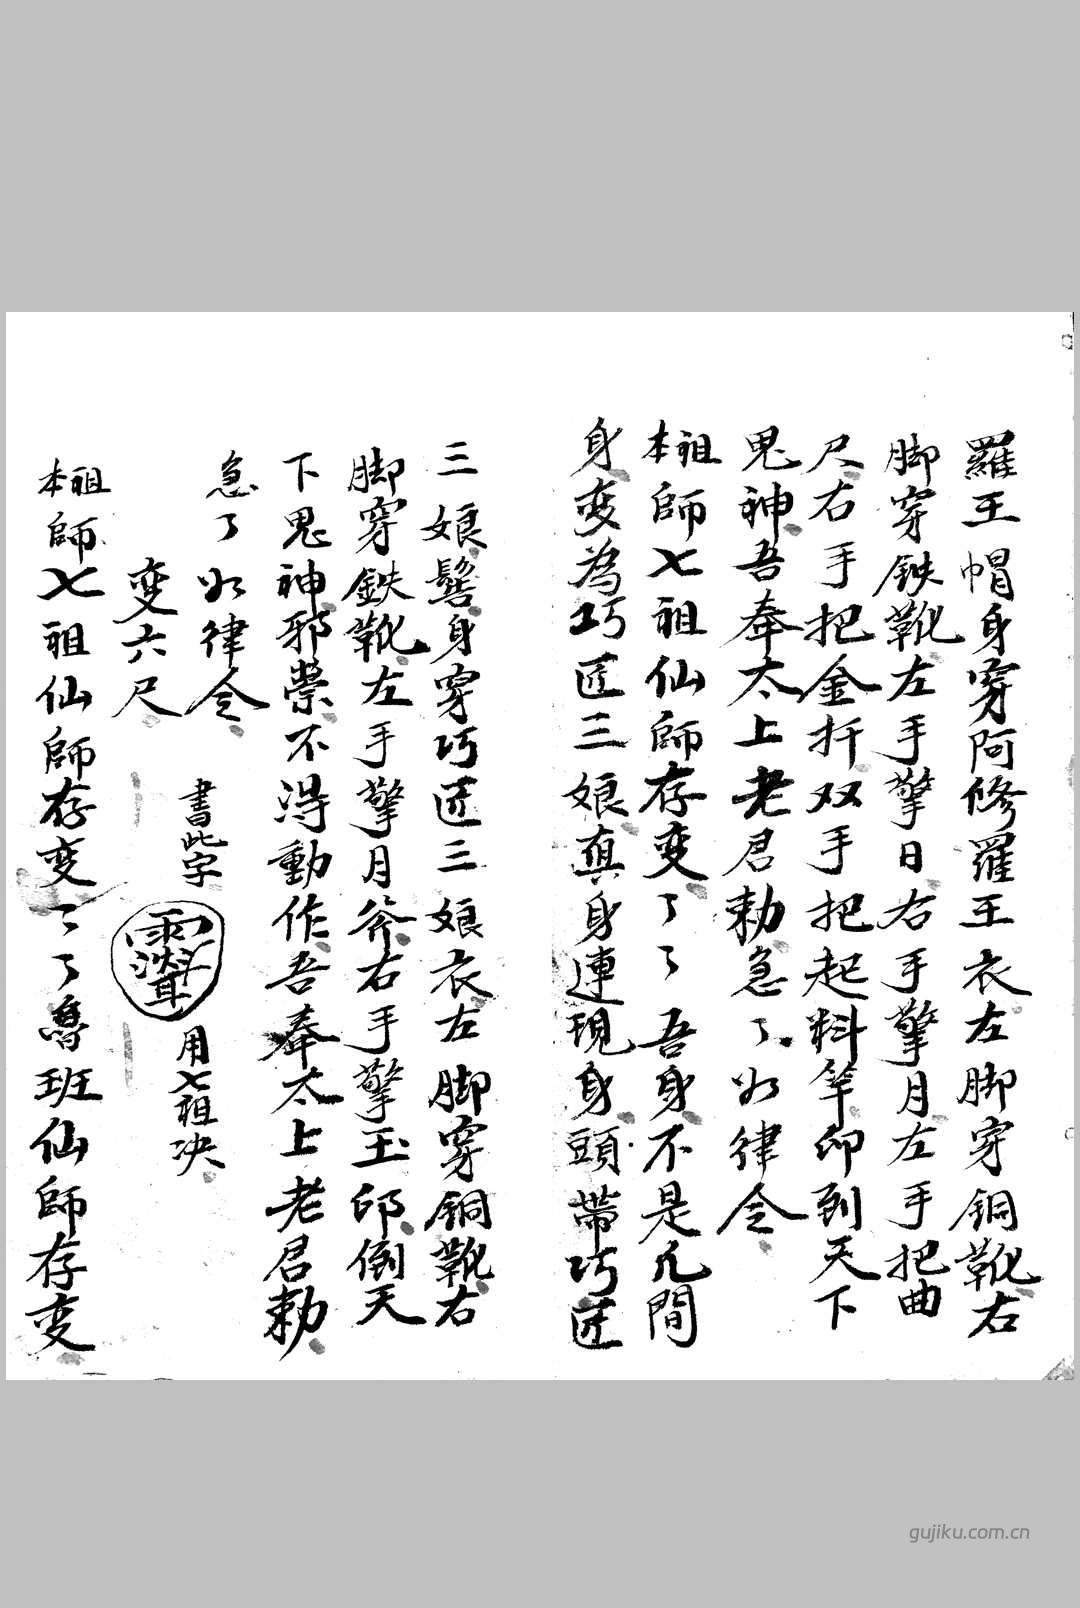 羅王帽身穿阿修羅王衣左脚穿銅靴右
脚穿鉄靴左手擎日右手擎月左手把曲
尺右手把金扦双手把起料竿卬到天下
鬼神吾奉太上老君勅急了如律令
本祖師七祖仙師存变了了吾身不是凢間
身变為巧匠三娘真身連現身頭帶巧匠
三娘髻身穿巧匠三娘衣左脚穿銅靴右
脚穿鉄靴左手擎月斧右手擎玉卬倒天
下鬼神邪祟不淂動作吾奉太上老君勅
急了如律令
变六尺 書此字 用七祖决
本祖師七祖仙師存变了了魯班仙師存变
gujiku.com.cn